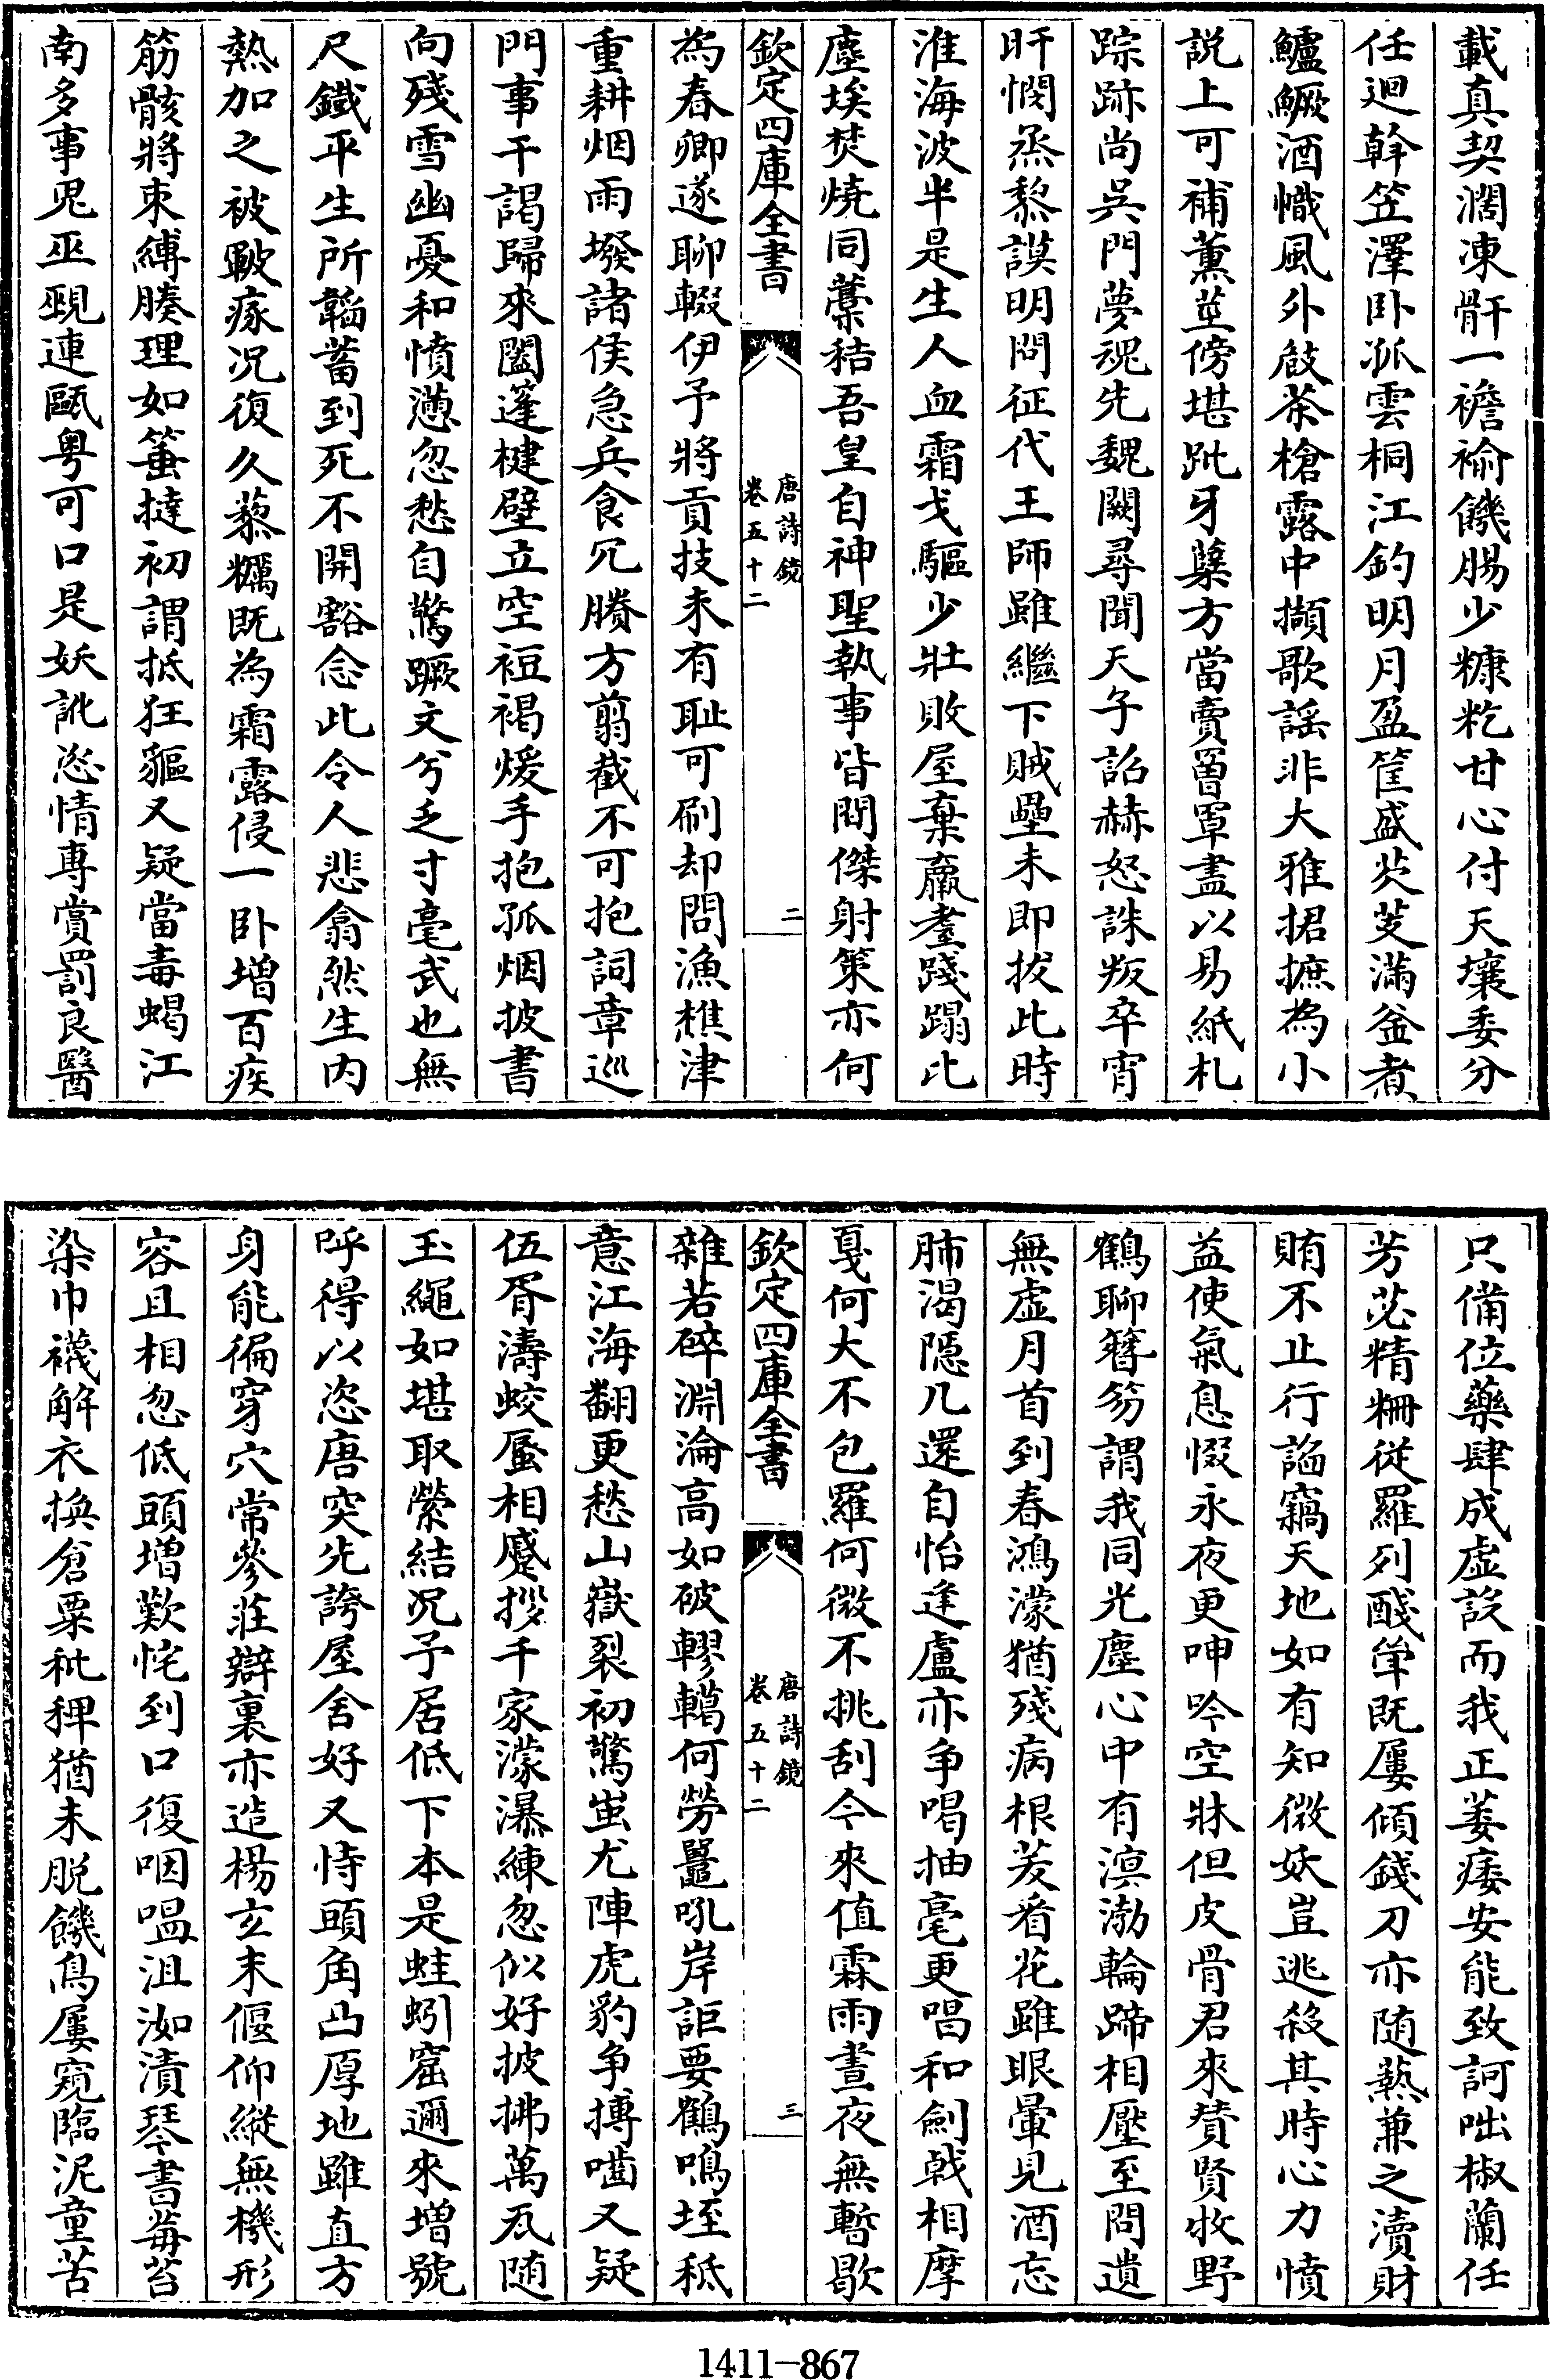 載真契濶凍骭一襜褕饑腸少糠籺甘心付天壤委分
任迴斡笠澤卧孤雲桐江釣明月盈筐盛芡芰滿釡煮
鱸鱖酒幟風外㪣茶槍露中擷歌謡非大雅捃摭為小
説上可補薰莖傍堪跐牙糵方當賣罾罩盡以易紙札
踪跡尚吳門夢魂先魏闕尋聞天子詔赫怒誅叛卒宵
旰憫烝黎謨明問征伐王師雖繼下賊壘未即拔此時
淮海波半是生人血霜戈驅少壯敗屋棄羸耋踐蹋比
塵埃焚燒同藁秸吾皇自神聖執事皆間傑射策亦何
欽定四庫全書
唐詩鏡
卷五十二
二
為春卿遂聊輟伊予將貢技未有耻可刷却問漁樵津
重耕烟雨墢諸侯急兵食冗賸方翦截不可抱詞章巡
門事干謁歸來闔蓬楗壁立空裋褐煖手抱孤烟披書
向殘雪幽憂和憤懣忽愁自驚蹶文兮乏寸毫武也無
尺鐵平生所韜蓄到死不開豁念此令人悲翕然生内
熱加之被皸瘃况復久藜糲既為霜露侵一卧増百疾
筋骸將束縛腠理如箠撻初謂抵狂貙又疑當毒蝎江
南多事鬼巫覡連甌粤可口是妖訛恣情專賞罰良醫
只備位藥肆成虚設而我正萎痿安能致訶咄椒蘭任
芳苾精粣從羅列醆斚既屢傾錢刀亦随爇兼之瀆財
賄不止行謟竊天地如有知微妖豈逃殺其時心力憤
益使氣息惙永夜更呻吟空牀但皮骨君來賛賢牧野
鶴聊簪笏謂我同光塵心中有溟渤輪蹄相壓至問遺
無虚月首到春鴻濛猶殘病根茇看花雖眼暈見酒忘
肺渴隠几還自怡逢盧亦争喝抽毫更唱和劍㦸相摩
戛何大不包羅何微不挑刮今來值霖雨晝夜無暫歇
欽定四庫全書
唐詩鏡
卷五十二
三
雜若碎淵淪高如破轇轕何勞鼉吼岸詎要鸛鳴垤秪
意江海翻更愁山嶽裂初驚蚩尤陣虎豹争搏噛又疑
伍胥濤蛟蜃相蹙拶千家濛瀑練忽似好披拂萬瓦随
玉繩如堪取縈結况予居低下本是蛙蚓窟邇來増號
呼得以恣唐突先誇屋舍好又恃頭角凸厚地雖直方
身能徧穿穴常參莊辯裏亦造楊玄末偃仰縱無機形
容且相忽低頭増歎恠到口復咽嗢沮洳漬琴書莓苔
染巾襪解衣換倉粟秕稗猶未脱饑鳥屢窺臨泥童苦
1411—867